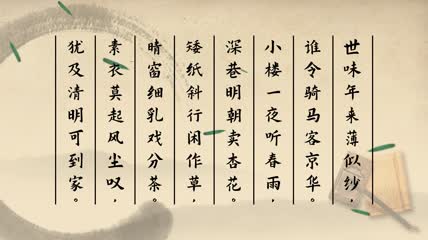 世味年来薄似纱，
谁令骑马客京华。
小楼一夜听春雨，
深巷明朝卖杏花。
矮纸斜行闲作草，
晴窗细乳戏分茶。
素衣莫起风尘叹，
犹及清明可到家。